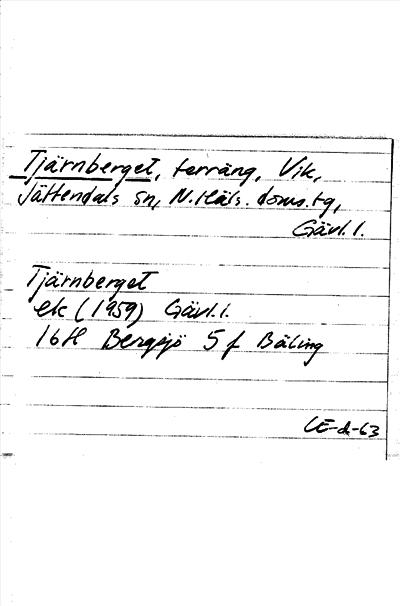 Tjärnberget, terräng, Vik,
Jättendals sn, N. Häls. doms.tg,
Gävl. l.
Tjärnberget
ek (1959) Gävl. l.
16H Bergsjö 5 f Bäling
CE-d-63